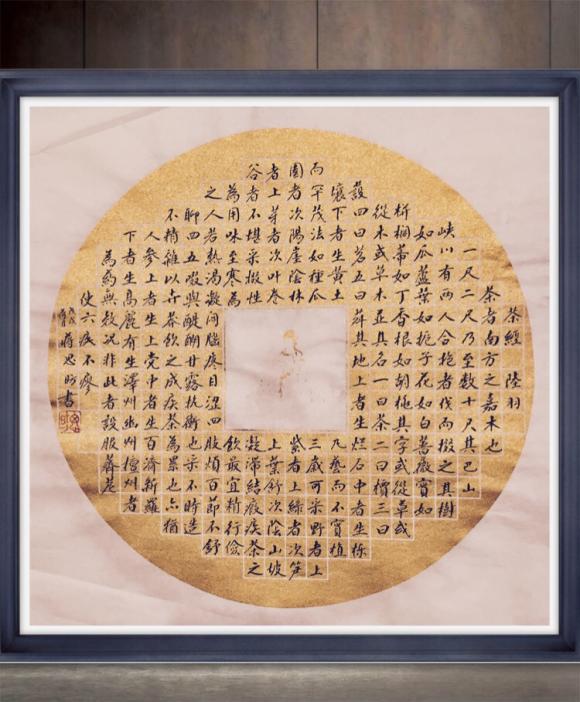 茶經 陸羽
茶者南方之嘉木也
一尺二尺乃至數十尺其巴山
峽川有兩人合抱者伐而掇之其樹
如瓜蘆葉如梔子花如白薔薇實如
栟櫚蒂如丁香根如胡桃其字或從草或
從木或草木並其名一曰茶二曰檟三曰
蔎四曰茗五曰荈其地上者生爛石中者生櫟
壤下者生黃土凡藝而不實植
而罕茂法如種瓜三歲可采野者上
園者次陽崖陰林紫者上綠者次笋
者上芽者次葉卷上葉舒次陰山坡
谷者不堪采掇性凝滯結瘕疾茶之
為用味至寒為飲最宜精行儉
之人若熱渴凝悶腦疼目澀四肢煩百節不舒
聊四五啜與醍醐甘露抗衡也采不時造
不精雜以卉莽飲之成疾茶為累也亦猶
人參上者生上黨中者生百濟新羅
下者生高麗有生澤州幽州檀州者
為藥無效況非此者設服薺苨
使六疾不瘳
蔣思書